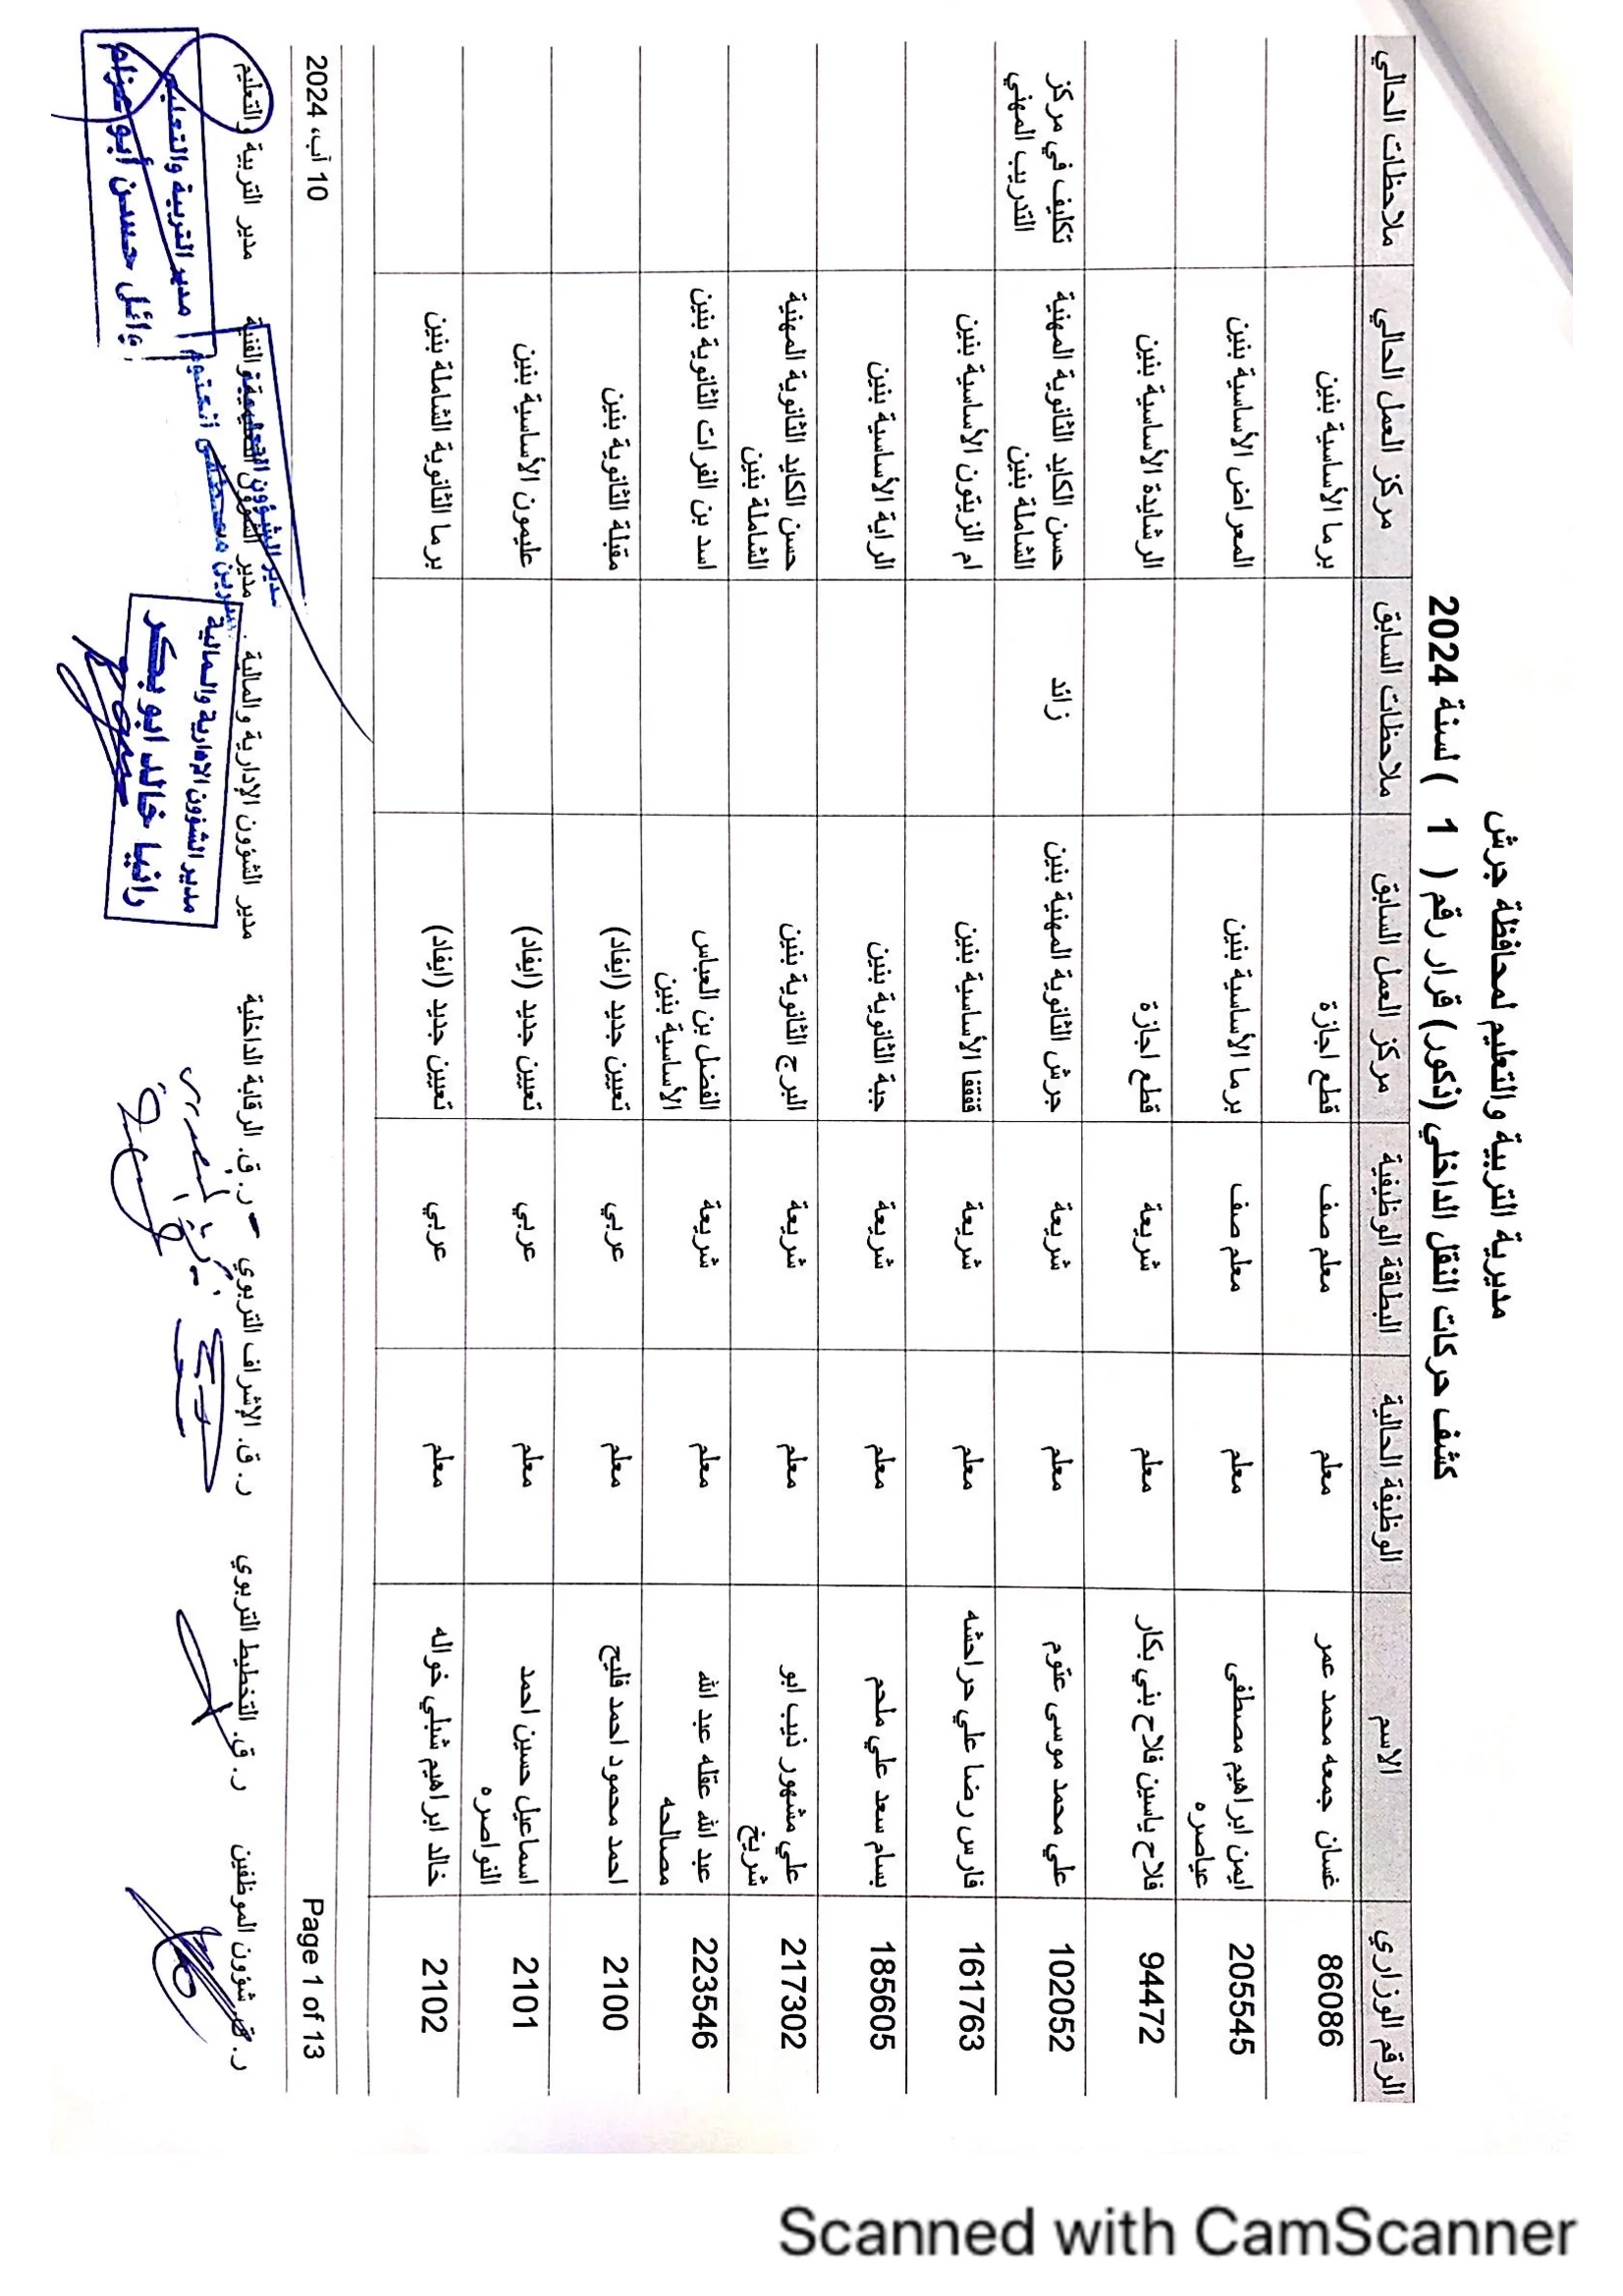 مديرية التربية والتعليم لمحافظة جرش
كشف حركات النقل الداخلي (ذكور) قرار رقم ( 1 ) لسنة 2024
الرقم الوزاري الاسم الوظيفة الحالية البطاقة الوظيفية مركز العمل السابق ملاحظات السابق مركز العمل الحالي ملاحظات الحالي
86086 غسان جمعه محمد عمر معلم معلم صف قطع اجازة برما الأساسية بنين
205545 ايمن ابراهيم مصطفى معلم معلم صف برما الأساسية بنين المعراض الأساسية بنين
عياصره
94472 فلاح ياسين فلاح بني بكار معلم شريعة قطع اجازة الرشايدة الأساسية بنين
102052 علي محمد موسى عتوم معلم شريعة جرش الثانوية المهنية بنين زائد حسن الكايد الثانوية المهنية تكليف في مركز
الشاملة بنين التدريب المهني
161763 فارس رضا علي حراحشه معلم شريعة قفقفا الأساسية بنين ام الزيتون الأساسية بنين
185605 بسام سعد علي ملحم معلم شريعة جبة الثانوية بنين الراية الأساسية بنين
217302 علي مشهور ذيب ابو معلم شريعة البرج الثانوية بنين حسن الكايد الثانوية المهنية
شريخ الشاملة بنين
223546 عبد الله عقله عبد الله معلم شريعة الفضل بن العباس اسد بن الفرات الثانوية بنين
مصالحه الأساسية بنين
2100 احمد محمود احمد فليح معلم عربي تعيين جديد (ايفاد) مقبلة الثانوية بنين
2101 اسماعيل حسين احمد معلم عربي تعيين جديد (ايفاد) عليمون الأساسية بنين
النواصره
2102 خالد ابراهيم شبلي خواله معلم عربي تعيين جديد (ايفاد) برما الثانوية الشاملة بنين
Page 1 of 13 10 آب، 2024
ر. ق. شؤون الموظفين ر. ق. التخطيط التربوي ر. ق. الإشراف التربوي ر. ق. الرقابة الداخلية مدير الشؤون الإدارية والمالية مدير الشؤون التعليمية والفنية مدير التربية والتعليم
مدير الشؤون الادارية والمالية
رانيا خالد ابو بكر
مدير الشؤون التعليمية
مدير التربية والتعليم
وائل حسن أبو عزام
Scanned with CamScanner